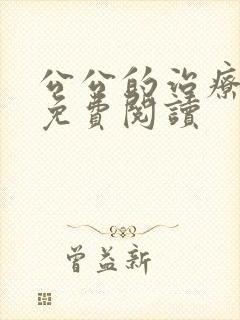 公公的治療
免費閱讀
曾益新